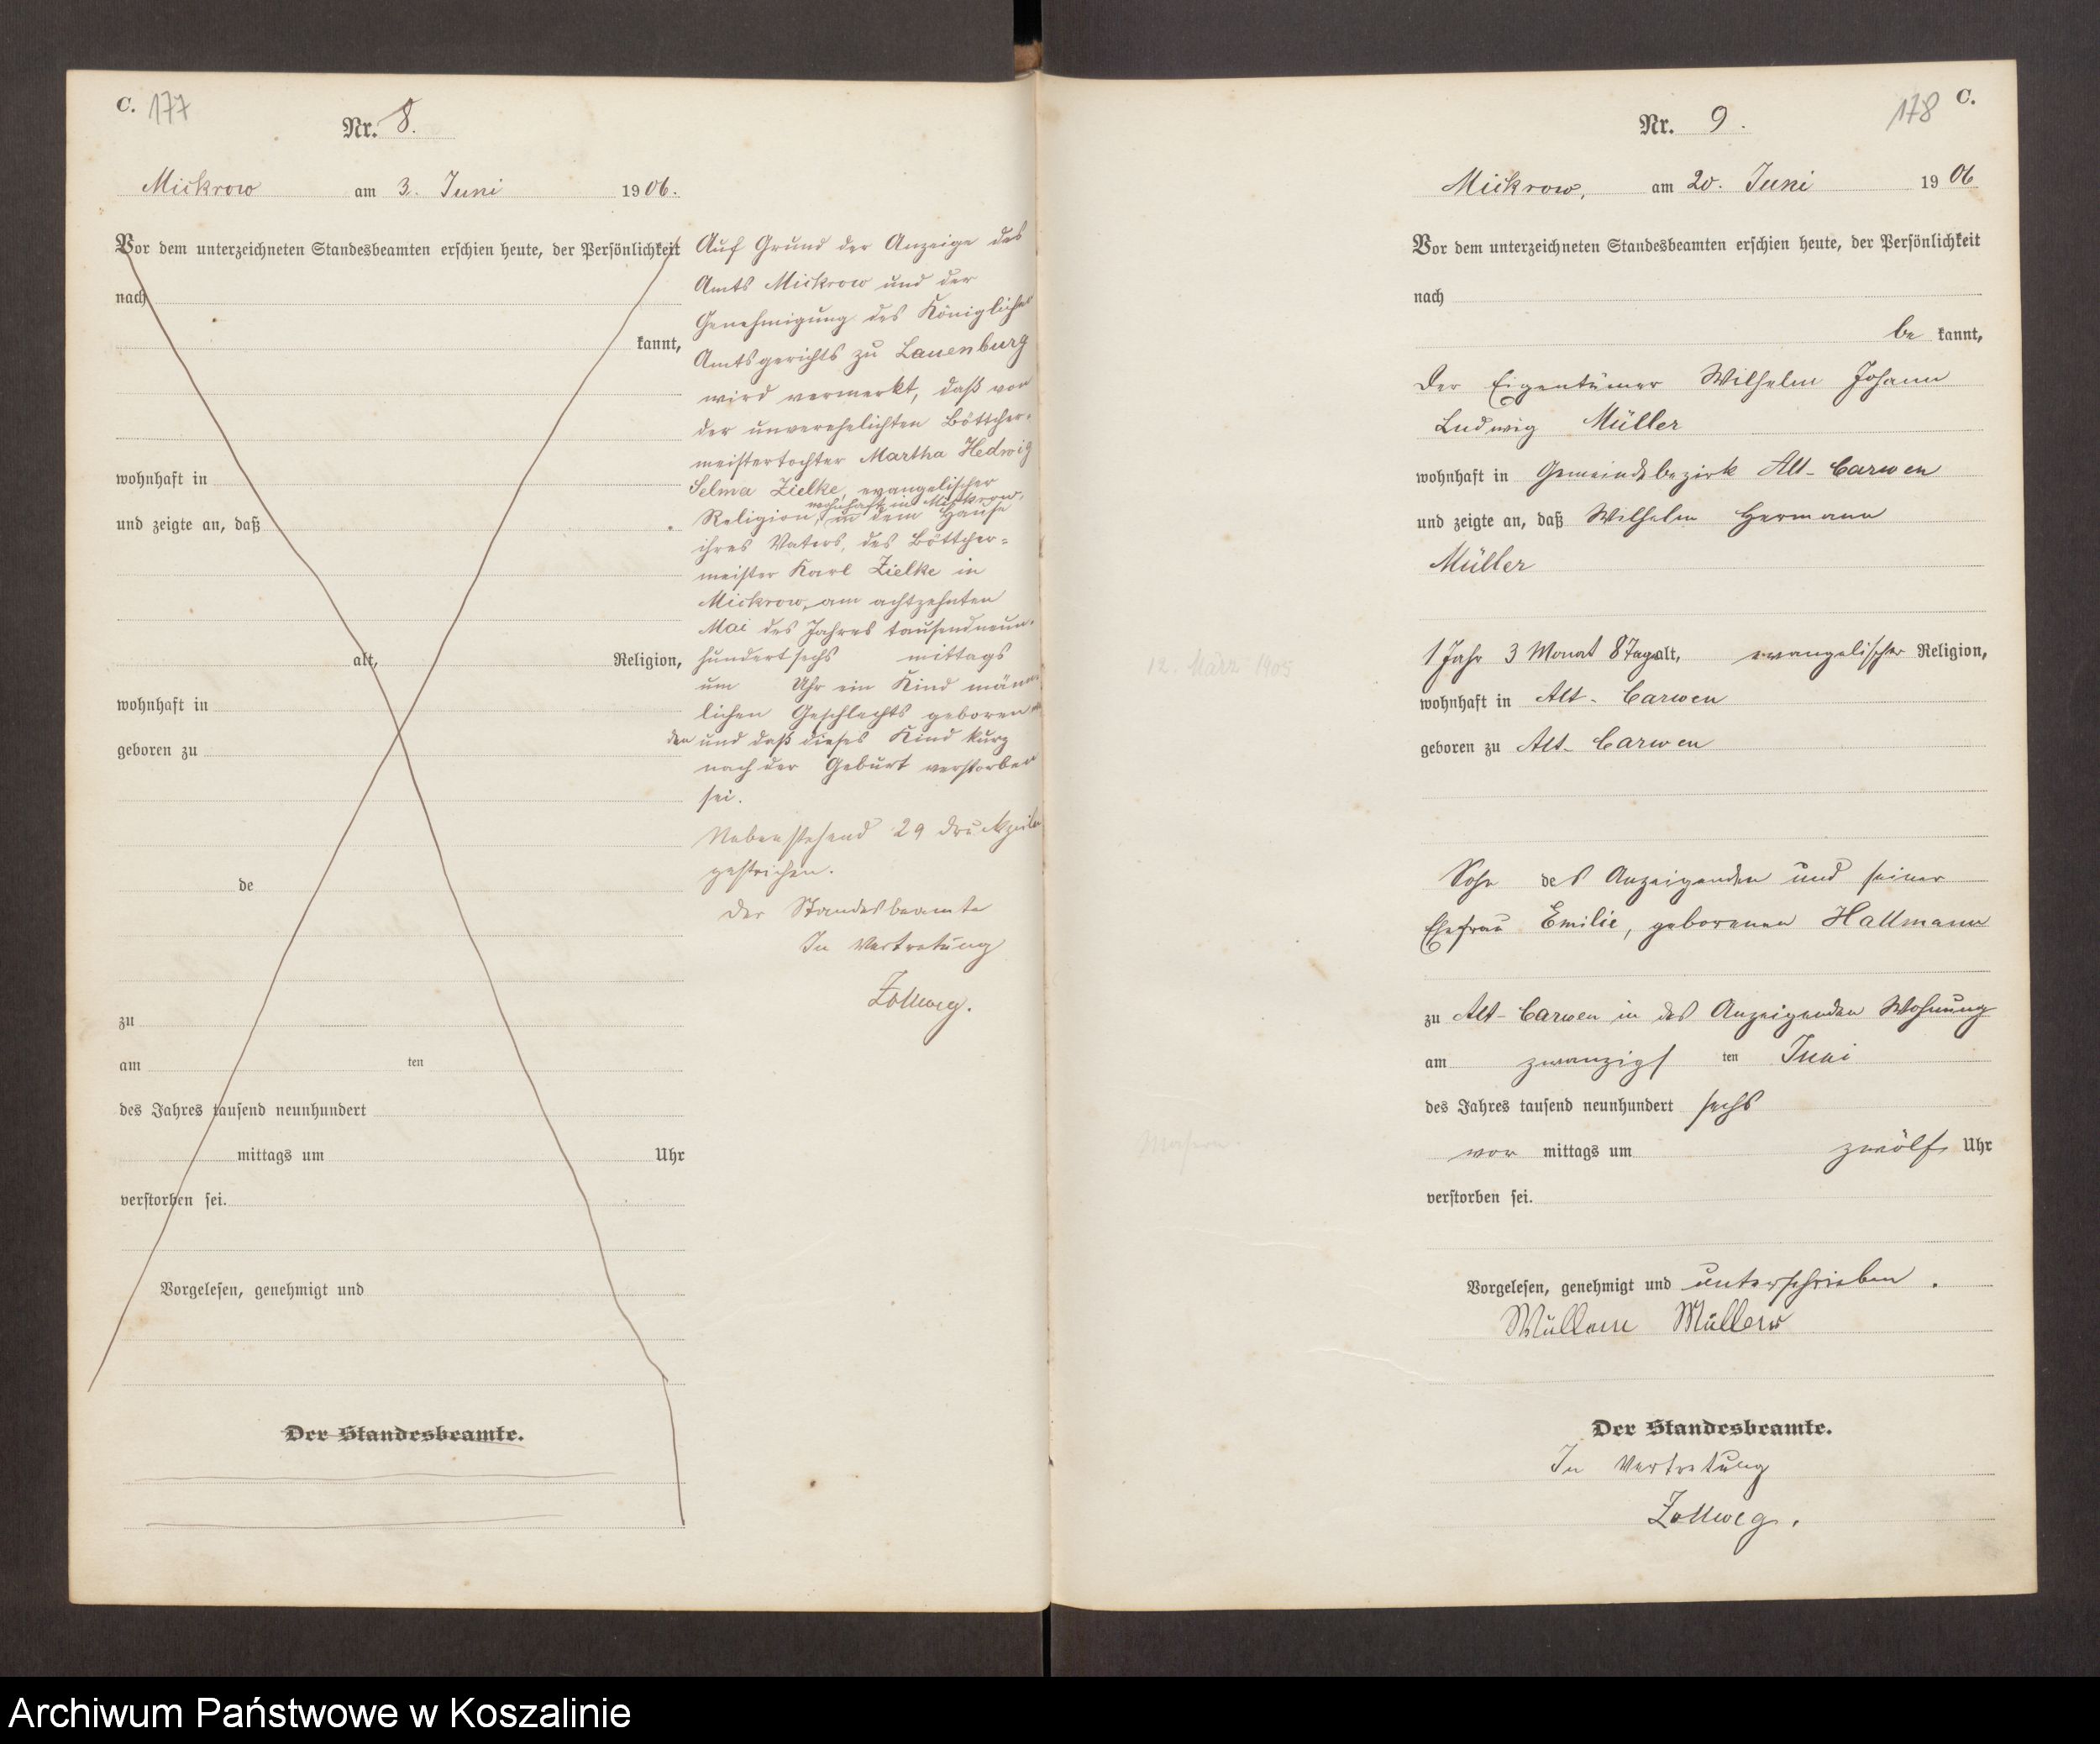 C. 177
Nr. 8.
Mickrow am 3. Juni 1906.
Vor dem unterzeichneten Standesbeamten erschien heute, der Persönlichkeit
nach
kannt,
wohnhaft in
und zeigte an, daß
alt, Religion,
wohnhaft in
geboren zu
de
zu
am ten
des Jahres tausend neunhundert
mittags um Uhr
verstorben sei.
Vorgelesen, genehmigt und
Der Standesbeamte.
Auf Grund der Anzeige des
Amts Mickrow und der
Genehmigung des Königlichen
Amtsgerichts zu Lauenburg
wird vermerkt, daß von
der unverehelichten Böttcher-
meistertochter Martha Hedwig
Selma Zielke, evangelischer
wohnhaft in Mickrow,
Religion, in dem Hause
ihres Vaters, des Böttcher-
meister Karl Zielke in
Mickrow, am achtzehnten
Mai des Jahres tausendneun-
hundertsechs mittags
um Uhr ein Kind männ-
lichen Geschlechts geboren
den und daß dieses Kind kurz
nach der Geburt verstorben
sei.
Nebenstehend 29 Druckzeilen
gestrichen.
Der Standesbeamte
In Vertretung
Zollweg.
178 C.
Nr. 9.
Mickrow, am 20. Juni 1906
Vor dem unterzeichneten Standesbeamten erschien heute, der Persönlichkeit
nach
be kannt,
der Eigentümer Wilhelm Johann
Ludwig Müller
wohnhaft in Gemeindebezirk Alt-Carwen
und zeigte an, daß Wilhelm Hermann
Müller
12. März 1905
1 Jahr 3 Monat 8 Tage alt, evangelischer Religion,
wohnhaft in Alt-Carwen
geboren zu Alt-Carwen
Sohn des Anzeigenden und seiner
Ehefrau Emilie, geborenen Hallmann
zu Alt-Carwen in des Anzeigenden Wohnung
am zwanzigs ten Juni
des Jahres tausend neunhundert sechs
vor mittags um zwölf Uhr
verstorben sei.
Masern.
Vorgelesen, genehmigt und unterschrieben.
Müller
Der Standesbeamte.
In Vertretung
Zollweg.
Archiwum Państwowe w Koszalinie